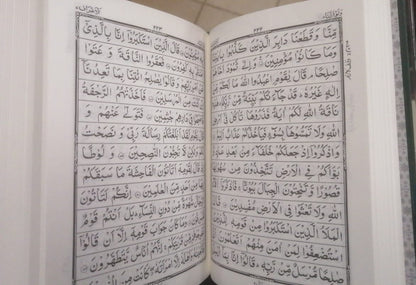 ٢٣٣
مِنَّا وَقَطَعْنَا دَابِرَ الَّذِيْنَ كَذَّبُوْا بِاٰيٰتِنَا
وَمَا كَانُوْا مُؤْمِنِيْنَ وَاِلٰى ثَمُوْدَ اَخَاهُمْ
صٰلِحًا قَالَ يٰقَوْمِ اعْبُدُوا اللّٰهَ مَا لَكُمْ مِّنْ
اِلٰهٍ غَيْرُهٗ قَدْ جَآءَتْكُمْ بَيِّنَةٌ مِّنْ رَّبِّكُمْ هٰذِهٖ
نَاقَةُ اللّٰهِ لَكُمْ اٰيَةً فَذَرُوْهَا تَاْكُلْ فِيْٓ اَرْضِ
اللّٰهِ وَلَا تَمَسُّوْهَا بِسُوْٓءٍ فَيَاْخُذَكُمْ عَذَابٌ اَلِيْمٌ
وَاذْكُرُوْٓا اِذْ جَعَلَكُمْ خُلَفَآءَ مِنْۢ بَعْدِ عَادٍ وَّ
بَوَّاَكُمْ فِى الْاَرْضِ تَتَّخِذُوْنَ مِنْ سُهُوْلِهَا
قُصُوْرًا وَّتَنْحِتُوْنَ الْجِبَالَ بُيُوْتًا فَاذْكُرُوْٓا اٰلَآءَ
اللّٰهِ وَلَا تَعْثَوْا فِى الْاَرْضِ مُفْسِدِيْنَ قَالَ
الْمَلَاُ الَّذِيْنَ اسْتَكْبَرُوْا مِنْ قَوْمِهٖ لِلَّذِيْنَ
اسْتُضْعِفُوْا لِمَنْ اٰمَنَ مِنْهُمْ اَتَعْلَمُوْنَ اَنَّ
صٰلِحًا مُّرْسَلٌ مِّنْ رَّبِّهٖ قَالُوْٓا اِنَّا بِمَآ اُرْسِلَ
مُؤْمِنُوْنَ قَالَ الَّذِيْنَ اسْتَكْبَرُوْٓا اِنَّا بِالَّذِيْٓ
اٰمَنْتُمْ بِهٖ كٰفِرُوْنَ فَعَقَرُوا النَّاقَةَ وَ عَتَوْا
عَنْ اَمْرِ رَبِّهِمْ وَ قَالُوْا يٰصٰلِحُ ائْتِنَا بِمَا تَعِدُنَآ
اِنْ كُنْتَ مِنَ الْمُرْسَلِيْنَ فَاَخَذَتْهُمُ الرَّجْفَةُ
فَاَصْبَحُوْا فِيْ دَارِهِمْ جٰثِمِيْنَ فَتَوَلّٰى عَنْهُمْ وَ
قَالَ يٰقَوْمِ لَقَدْ اَبْلَغْتُكُمْ رِسَالَةَ رَبِّيْ وَ نَصَحْتُ
لَكُمْ وَلٰكِنْ لَّا تُحِبُّوْنَ النّٰصِحِيْنَ وَ لُوْطًا
اِذْ قَالَ لِقَوْمِهٖٓ اَتَاْتُوْنَ الْفَاحِشَةَ مَا سَبَقَكُمْ
بِهَا مِنْ اَحَدٍ مِّنَ الْعٰلَمِيْنَ اِنَّكُمْ لَتَاْتُوْنَ
الرِّجَالَ شَهْوَةً مِّنْ دُوْنِ النِّسَآءِ بَلْ اَنْتُمْ قَوْمٌ
مُّسْرِفُوْنَ وَمَا كَانَ جَوَابَ قَوْمِهٖٓ اِلَّآ اَنْ قَالُوْٓا
اَخْرِجُوْهُمْ مِّنْ قَرْيَتِكُمْ اِنَّهُمْ اُنَاسٌ يَّتَطَهَّرُوْنَ
فَاَنْجَيْنٰهُ وَاَهْلَهٗٓ اِلَّا امْرَاَتَهٗ كَانَتْ مِنَ